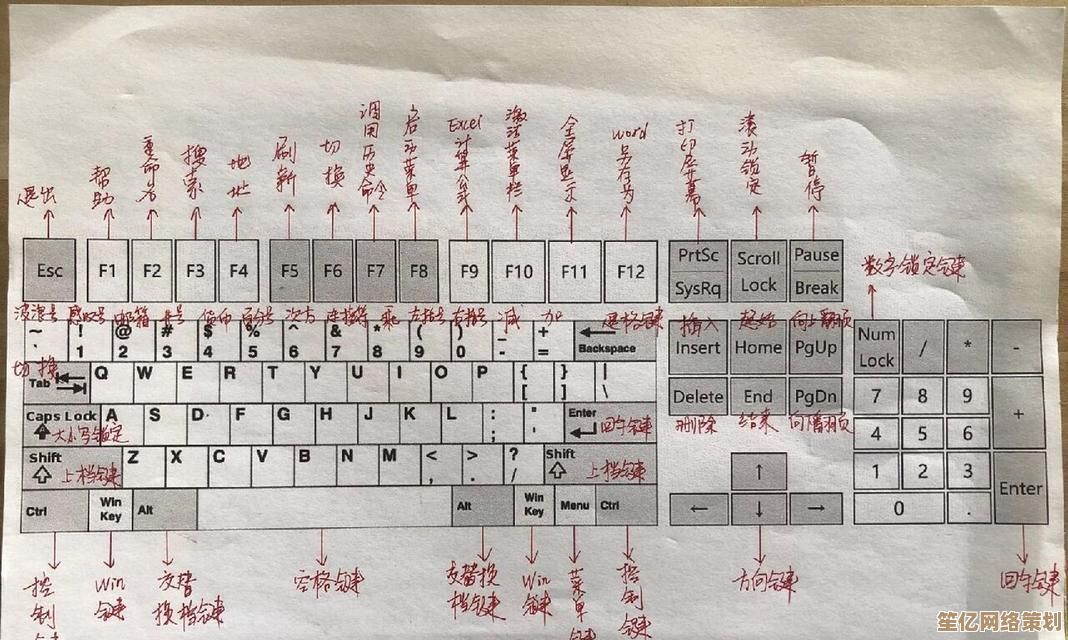 退出 帮助 重命名 搜索 地址 刷新 切换 调用历史命令 启动菜单 Excel计算公式 激活菜单栏 全屏显示 word另存为 打印屏幕 滚动锁定 暂停
Esc F1 F2 F3 F4 F5 F6 F7 F8 F9 F10 F11 F12 PrtSc SysRq Scroll Lock Pause Break
数字锁定键
波浪号 感叹号 邮箱 井号 货币 百分号 次方 连接符 乘 左括号 右括号 减 加 退格键 插入 起始 向上翻页
~ ! @ # $ % ^ & * ( ) _ +
` 1 2 3 4 5 6 7 8 9 0 - = Backspace Insert Home PgUp Num Lock / * -
切换
Tab Q W E R T Y U I O P { } |
[ ] \
Delete End PgDn 7 8 9 +
删除 结束 向下翻页
Caps Lock A S D F G H J K L : " Enter
大小写锁定 ; ' 回车键
4 5 6
Shift Z X C V B N M < > ? Shift
上档键 , . / 上档键
↑ 1 2 3 Enter
Ctrl Win Key Alt Alt Win Key Menu Ctrl ← ↓ → 0 .
控制键 Win键 交替换档键 空格键 交替换档键 Win键 菜单键 控制键 方向键 回车键
笙亿网络策划